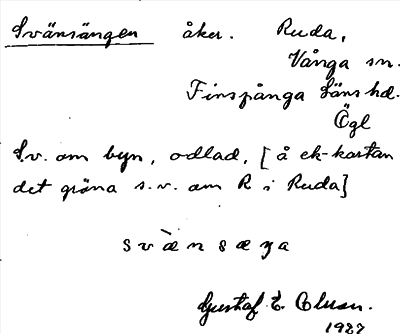 Svänsängen åker. Ruda,
Vånga sn.
Finspånga läns hd.
Ögl
S.v. om byn, odlad, [å ek-kartan
det gröna s.v. om R i Ruda]
svὰnsæŋa
Gustaf E. Olson.
1927